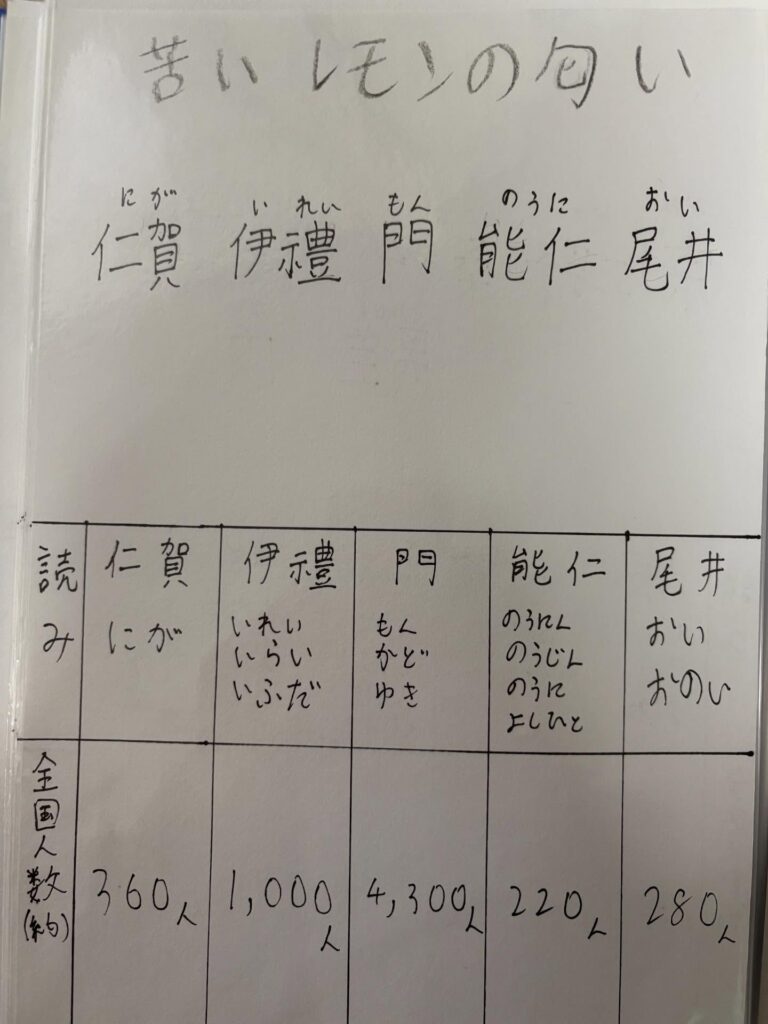 苦いレモンの匂い
にが いれい もん のうに おい
仁賀 伊禮 門 能仁 尾井
読み 仁賀 伊禮 門 能仁 尾井
にが いれい もん のうにん おい
いらい かど のうじん おのい
いふだ ゆき のうに
よしひと
全国人数(約) 360人 1,000人 4,300人 220人 280人